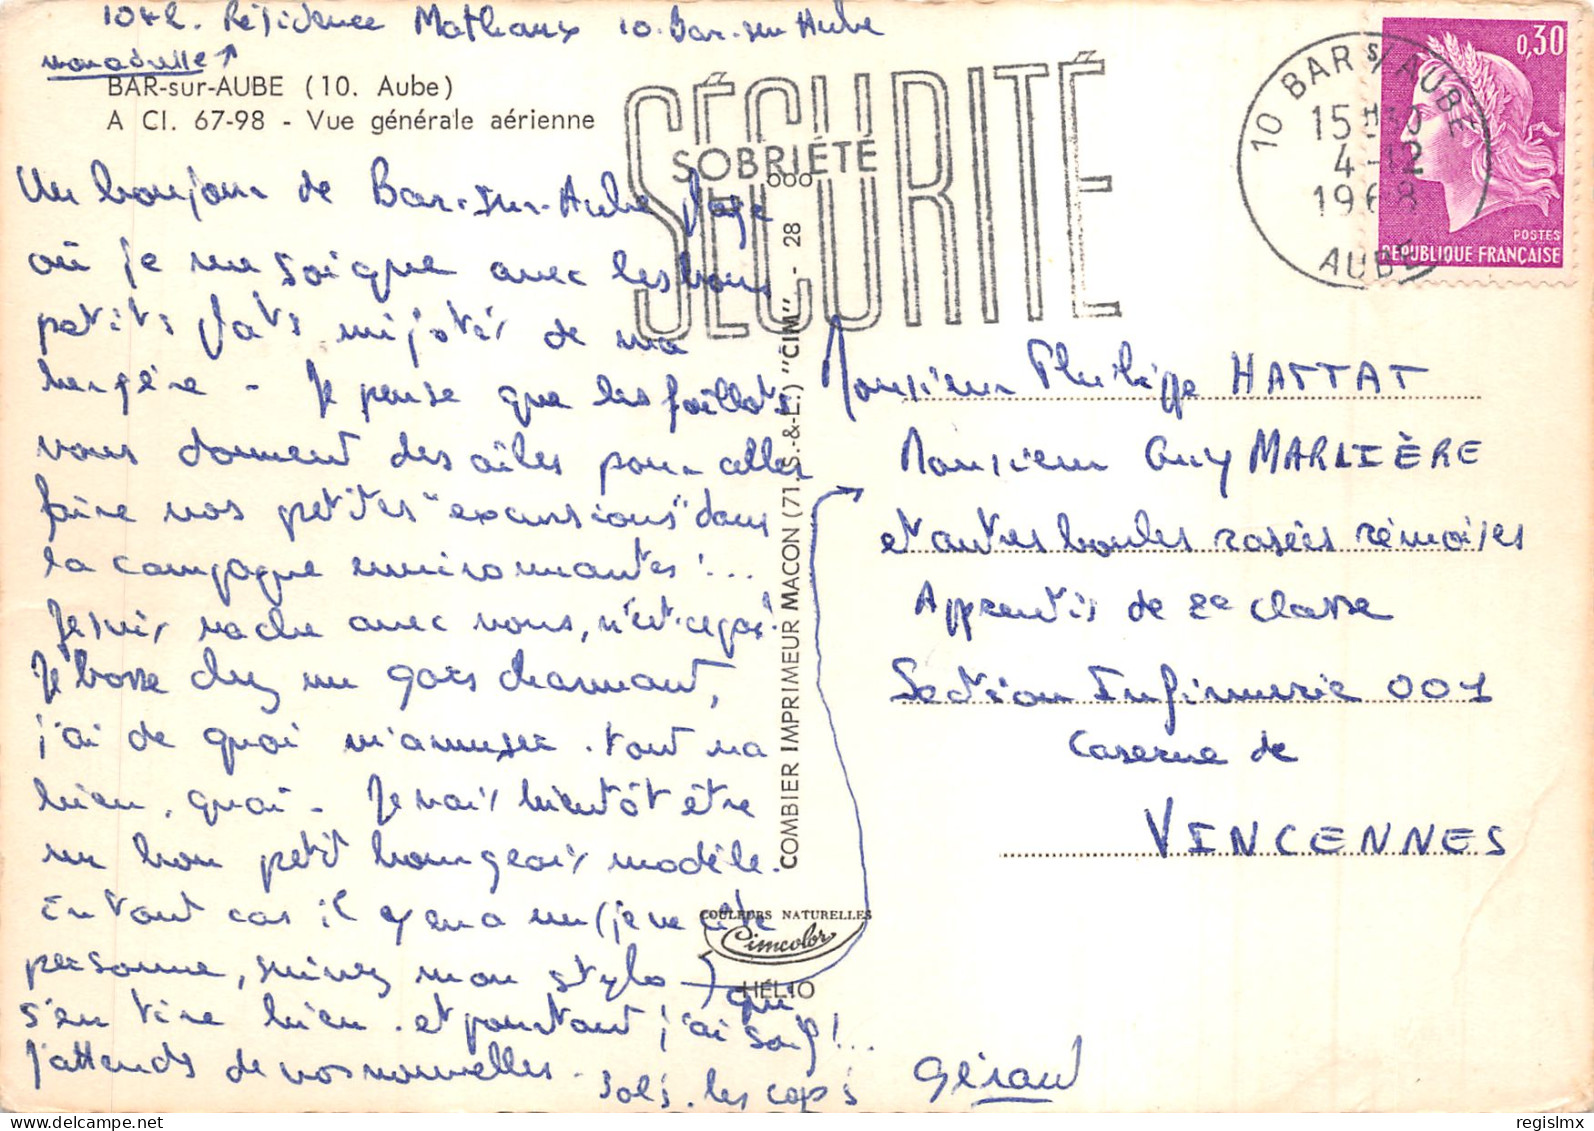 104 R. Résidence Mathaux 10. Bar-sur-Aube
mon adresse
BAR-sur-AUBE (10. Aube)
A CI. 67-98 - Vue générale aérienne
SÉCURITÉ
SOBRIÉTÉ
10 BAR S/ AUBE
15H30
4-12
1968
AUBE
0,30
POSTES
REPUBLIQUE FRANÇAISE
Un bonjour de Bar-sur-Aube plage
où je me soigne avec les bons
petits plats mijotés de ma
bergère - Je pense que les foillots
vous donnent des ailes pour aller
faire vos petites "excursions" dans
la campagne environnantes !...
Je suis vache avec vous, n'est-ce pas !
Je bosse chez un gars charmant,
j'ai de quoi m'amuser. tout va
bien, quoi - Je vais bientôt être
un bon petit bourgeois modèle.
En tout cas il y en a un (je ne cite
personne, suivez mon stylo) qui
s'en tire bien. et pourtant j'ai soif !...
J'attends de vos nouvelles.
Sol's. les cops's
Gérard
COMBIER IMPRIMEUR MACON (71. S.-&-L.) "CIM" - 28
COULEURS NATURELLES
Cimcolor
HÉLIO
Monsieur Philippe HATTAT
Monsieur Guy MARLIÈRE
et autres boules rasées rémoises
Apprentis de 2e classe
Section Infirmerie 001
Caserne de
VINCENNES
regislmx